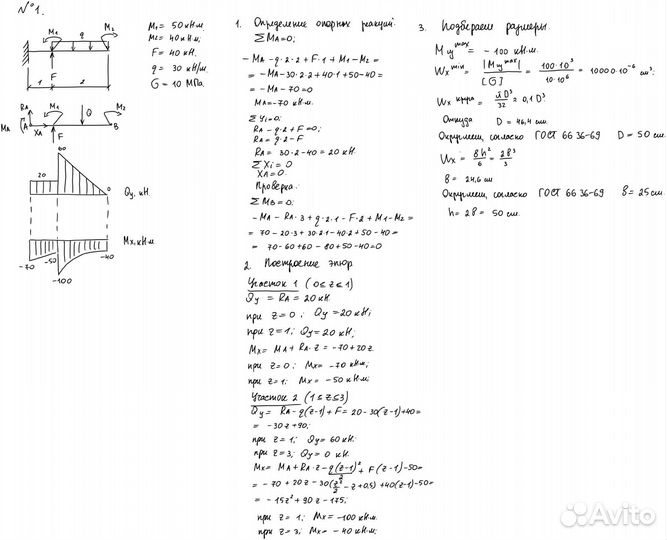 №1.
M₁ M₂ q
1 2
F
M₁ = 50 кН·м
M₂ = 40 кН·м;
F = 40 кН.
q = 30 кН/м
G = 10 МПа.
RA M₁ Q M₂
MA A XA B
F
60
20 0
Qy, кН
Mx, кН·м
-70 -50 -40
-100
1. Определение опорных реакций.
ΣMA=0;
-MA - q·2·2 + F·1 + M1 - M2 =
= -MA - 30·2·2 + 40·1 + 50 - 40 =
= -MA - 70 = 0
MA = -70 кН·м.
Σyi=0;
RA - q·2 + F = 0;
RA = q·2 - F
RA = 30·2 - 40 = 20 кН
ΣXi = 0
XA = 0
Проверка:
ΣMB = 0;
-MA - RA·3 + q·2·1 - F·2 + M1 - M2 =
= 70 - 20·3 + 30·2·1 - 40·2 + 50 - 40 =
= 70 - 60 + 60 - 80 + 50 - 40 = 0
2. Построение эпюр
Участок 1 (0≤z≤1)
Qy = RA = 20 кН
при z = 0; Qy = 20 кН;
при z = 1; Qy = 20 кН;
Mx = MA + RA·z = -70 + 20z
при z = 0; Mx = -70 кН·м;
при z = 1; Mx = -50 кН·м;
Участок 2 (1≤z≤3)
Qy = RA - q(z-1) + F = 20 - 30(z-1) + 40 =
= -30z + 90;
при z = 1; Qy = 60 кН.
при z = 3; Qy = 0 кН.
Mx = MA + RA·z - q(z-1)²/2 + F(z-1) - 50 =
= -70 + 20z - 30(z²/2 - z + 0,5) + 40(z-1) - 50 =
= -15z² + 90z - 175;
при z = 1; Mx = -100 кН·м.
при z = 3; Mx = -40 кН·м;
3. Подбираем размеры.
M yᵐᵃˣ = -100 кН·м.
Wxᵐⁱⁿ = |Myᵐᵃˣ|/[G] = 100·10³/10·10⁶ = 10000·10⁻⁶ см³;
Wx круга = πD³/32 ≈ 0,1D³
Откуда D = 46,4 см.
Округляем, согласно ГОСТ 6636-69 D = 50 см.
Wx = bh²/6 = 2b³/3
b = 24,6 см
Округляем, согласно ГОСТ 6636-69 b = 25 см.
h = 2b = 50 см.
Avito